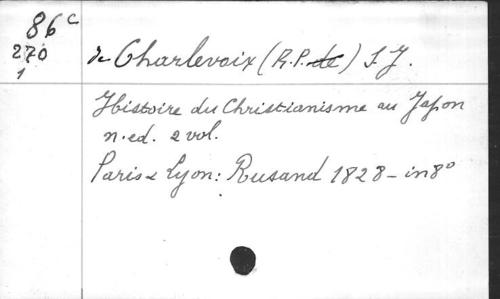 86c
270
1
de Charlevoix (R.P. de) S.J.
Histoire du Christianisme au Japon
n.ed. 2 vol.
Paris & Lyon: Rusand 1828 - in 8°